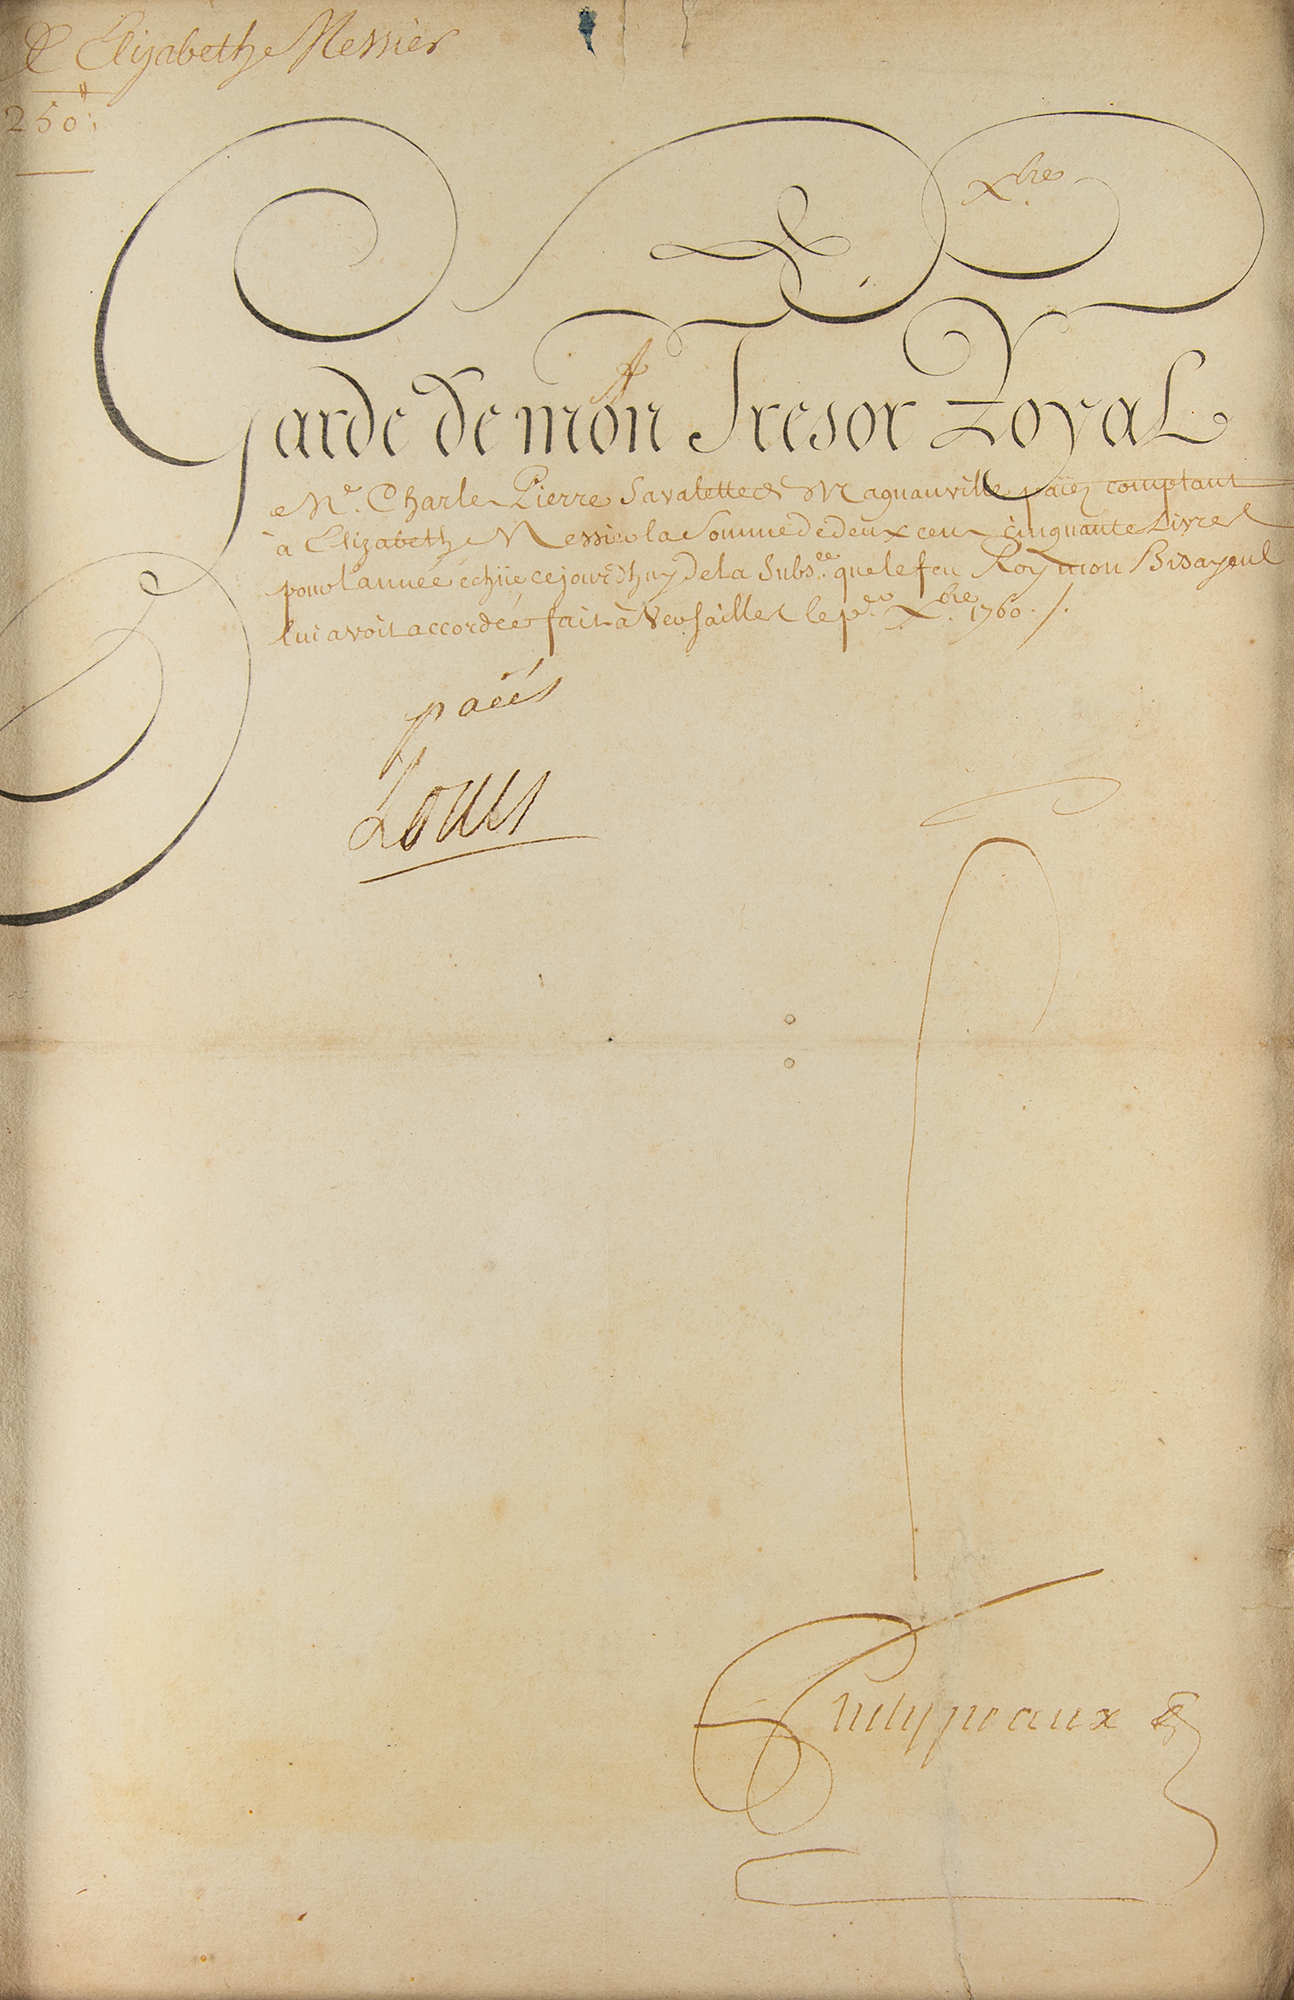 Elizabeth Messier
250#
Xbre
Garde de mon Tresor Royal
Me. Charle Pierre Savalette de Magnanville païez comptant
à Elizabeth Messier la Somme de deux cens cinquante Livres
pour l'année échüe cejourd'huy de la Subsce. que le feu Roy mon Bisayeul
lui avoit accordée fait à Versailles le per. Xbre. 1760 ./.
paiés
Louis
Phelypeaux